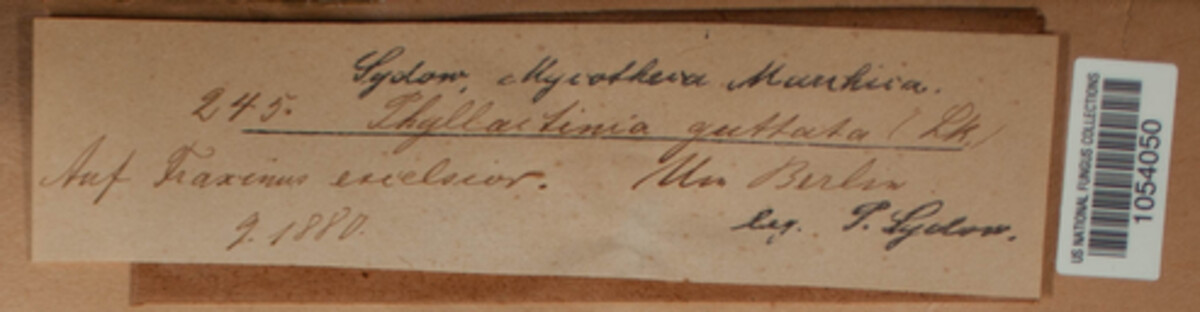 Sydow, Mycotheca Marchica.
245. Phyllactinia guttata (Lk.)
Auf Fraxinus excelsior. Um Berlin
9. 1880.
leg. P. Sydow.
US NATIONAL FUNGUS COLLECTIONS
1054050